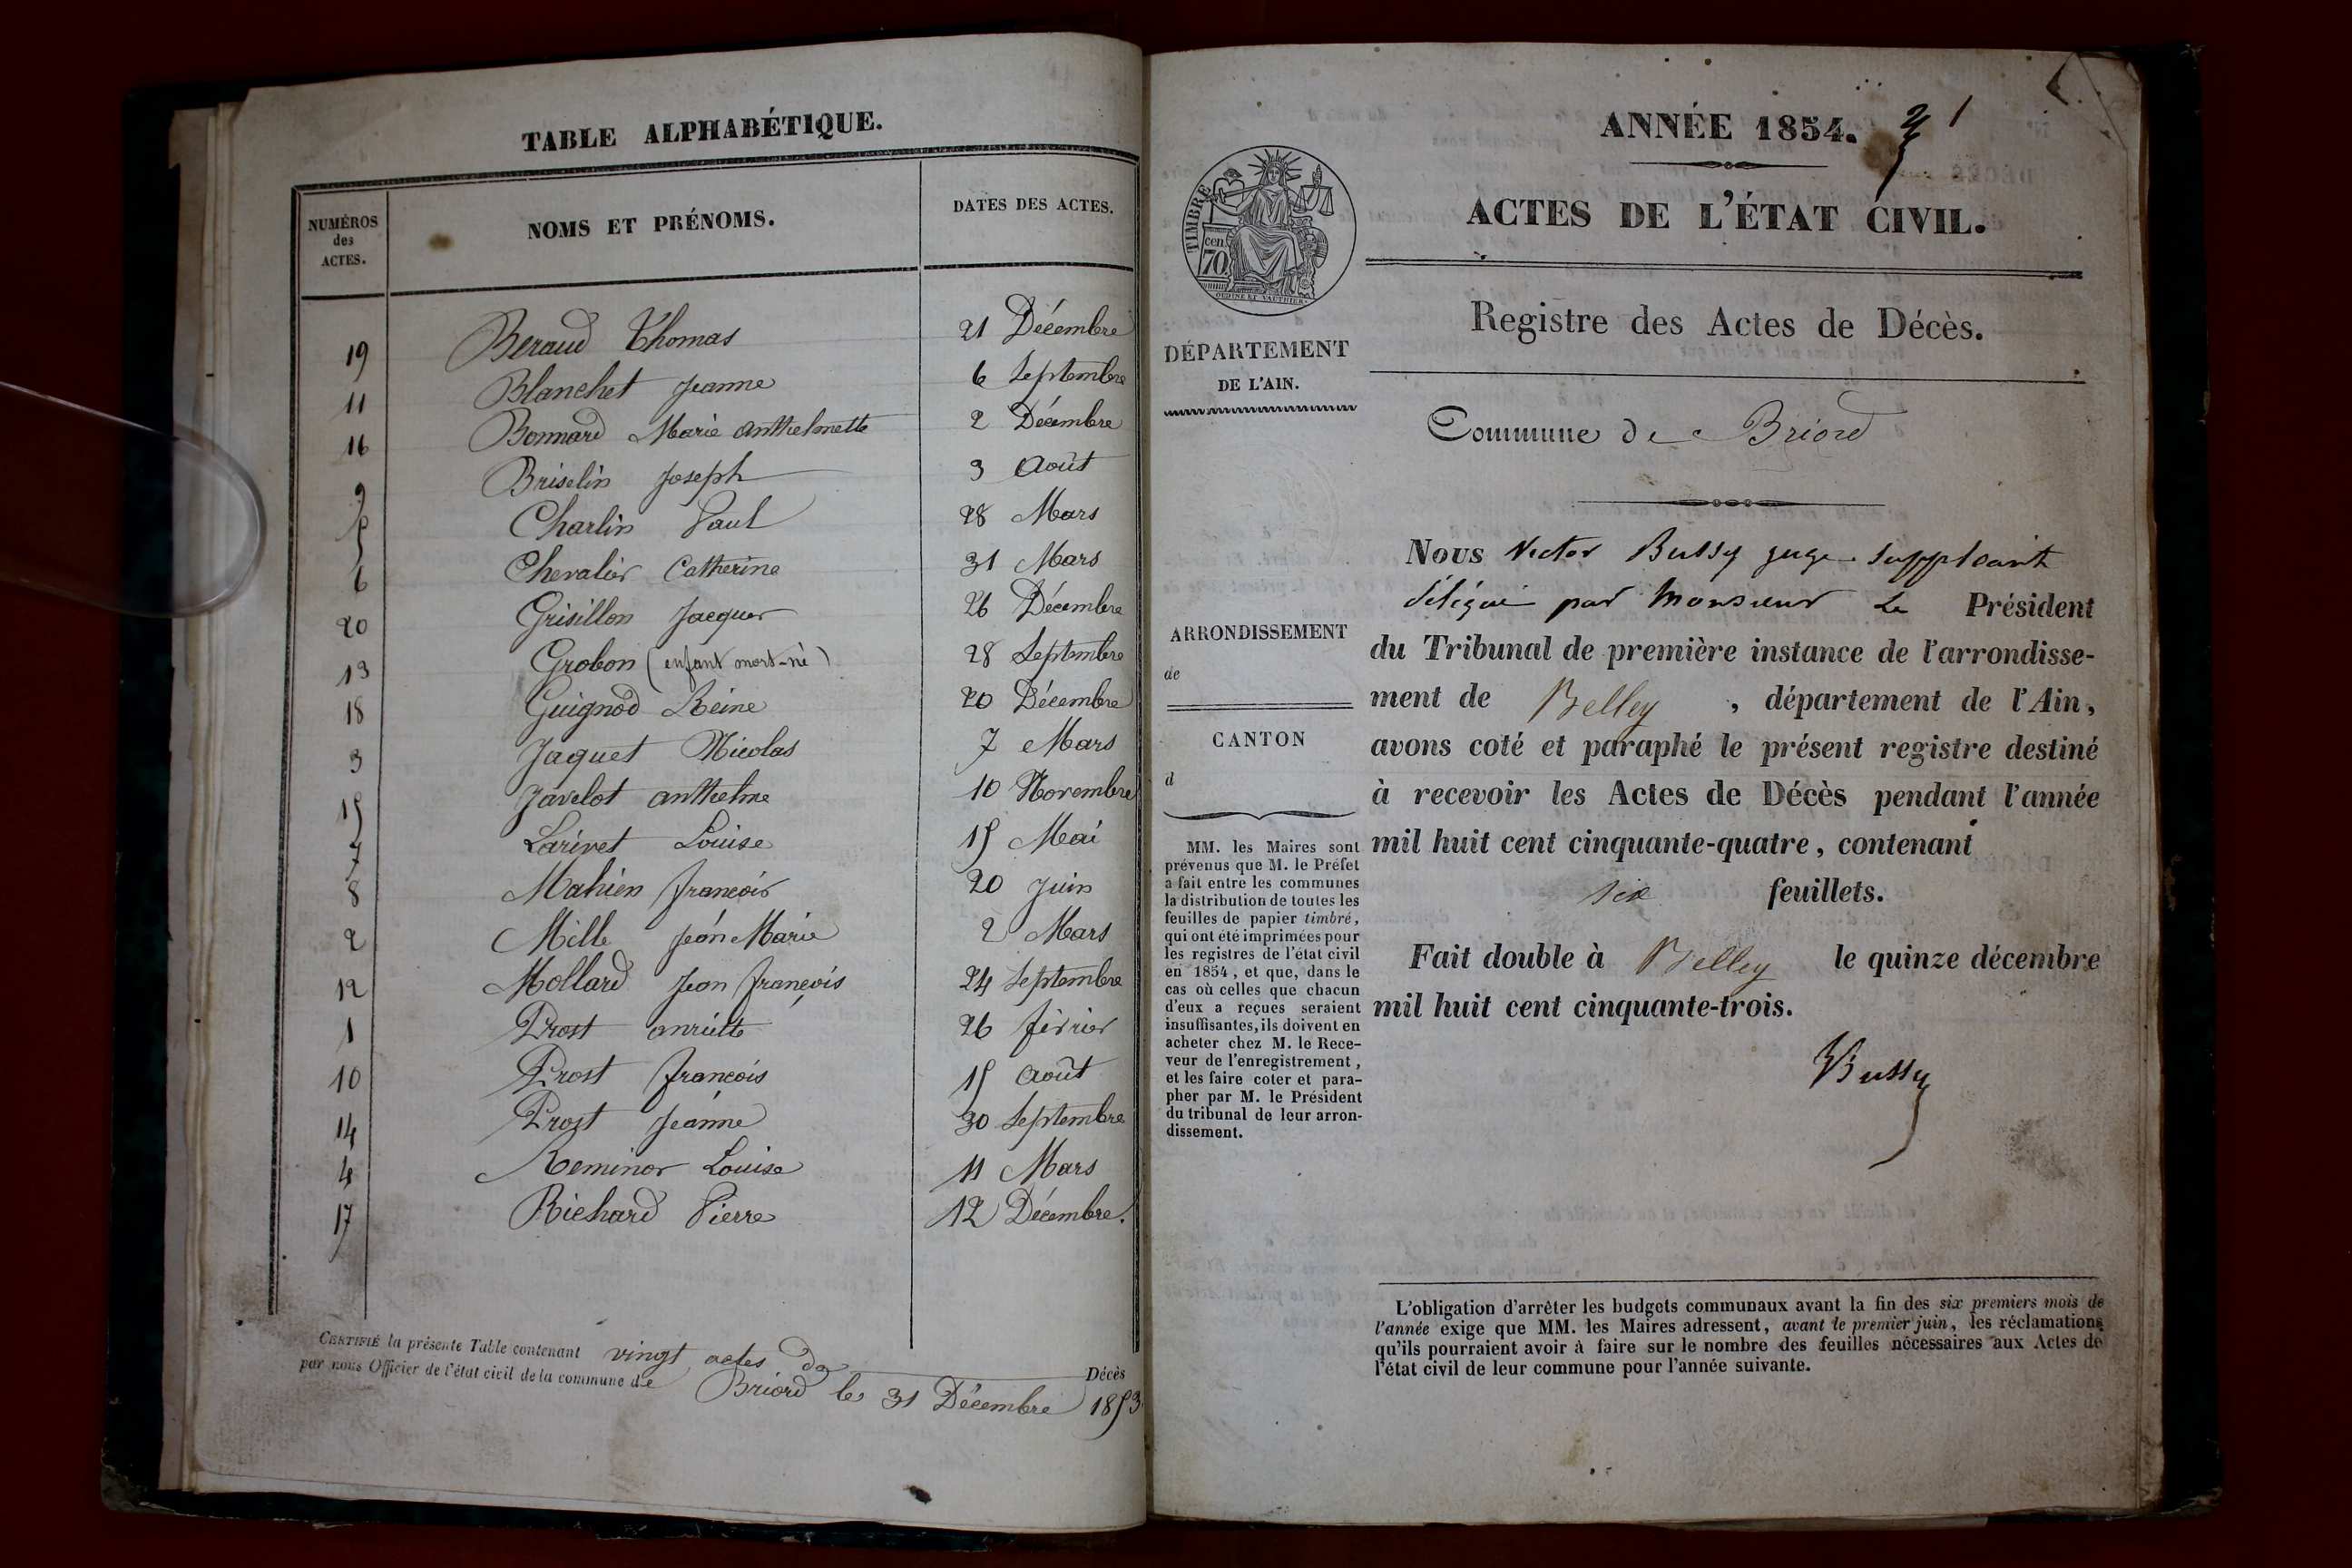 TABLE ALPHABÉTIQUE.
NUMÉROS
des
ACTES.
NOMS ET PRÉNOMS.
DATES DES ACTES.
19 Beraud Thomas 21 Décembre
11 Blanchet Jeanne 6 Septembre
16 Bonnard Marie Anthelmette 2 Décembre
9 Briselin Joseph 3 Août
5 Charlin Paul 28 Mars
6 Chevalier Catherine 31 Mars
20 Grisillon Jacques 26 Décembre
13 Grobon (enfant mort-né) 28 Septembre
18 Guignod Reine 20 Décembre
3 Jaquet Nicolas 7 Mars
15 Javelot Anthelme 10 Novembre
7 Larivet Louise 15 Mai
8 Mahien François 20 Juin
2 Mille Jean Marie 2 Mars
12 Mollard Jean François 24 Septembre
1 Prost Anriette 26 février
10 Prost François 15 Août
14 Prost Jeanne 30 Septembre
4 Reminor Louise 11 Mars
17 Richard Pierre 12 Décembre.
CERTIFIÉ la présente Table contenant vingt actes de Décès
par nous Officier de l'état civil de la commune de Briord le 31 Décembre 1853
ANNÉE 1854. 1
ACTES DE L'ÉTAT CIVIL.
TIMBRE
cen.
70
Registre des Actes de Décès.
DÉPARTEMENT
DE L'AIN.
Commune de Briord
Nous Victor Bussy juge suppléant
délégué par Monsieur Le Président
du Tribunal de première instance de l'arrondisse-
ment de Belley, département de l'Ain,
avons coté et paraphé le présent registre destiné
à recevoir les Actes de Décès pendant l'année
mil huit cent cinquante-quatre, contenant
six feuillets.
Fait double à Belley le quinze décembre
mil huit cent cinquante-trois.
Bussy
ARRONDISSEMENT
de
CANTON
d
MM. les Maires sont
prévenus que M. le Préfet
a fait entre les communes
la distribution de toutes les
feuilles de papier timbré,
qui ont été imprimées pour
les registres de l'état civil
en 1854, et que, dans le
cas où celles que chacun
d'eux a reçues seraient
insuffisantes, ils doivent en
acheter chez M. le Rece-
veur de l'enregistrement,
et les faire coter et para-
pher par M. le Président
du tribunal de leur arron-
dissement.
L'obligation d'arrêter les budgets communaux avant la fin des six premiers mois de
l'année exige que MM. les Maires adressent, avant le premier juin, les réclamations
qu'ils pourraient avoir à faire sur le nombre des feuilles nécessaires aux Actes de
l'état civil de leur commune pour l'année suivante.